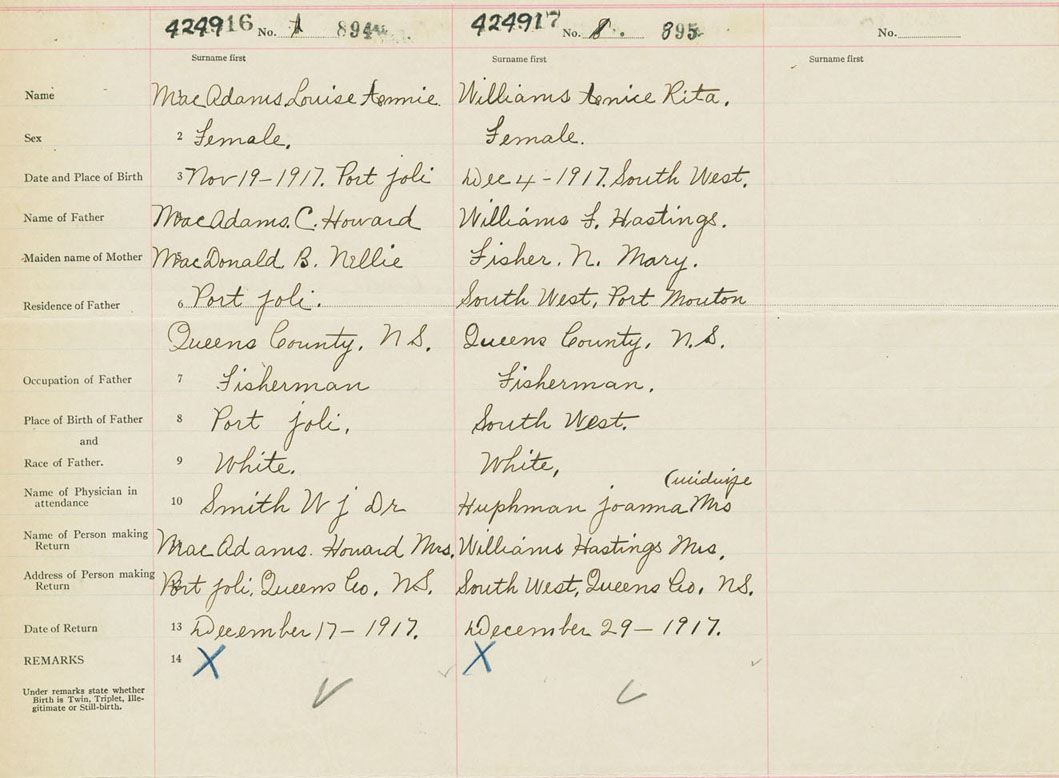 424916 No. 1 894 424917 No. 8. 895 No.
Surname first Surname first Surname first
Name MacAdams Louise Annie Williams Rita.
Sex 2 Female. Female.
Date and Place of Birth 3 Nov 19-1917. Port Joli Dec 4-1917. South West.
Name of Father MacAdams. C. Howard Williams F. Hastings.
Maiden name of Mother MacDonald B. Nellie Fisher. N. Mary.
Residence of Father 6 Port Joli. South West, Port Mouton
Queens County, N S. Queens County, N.S.
Occupation of Father 7 Fisherman Fisherman.
Place of Birth of Father 8 Port Joli, South West.
and
Race of Father. 9 White. White,
(midwife
Name of Physician in attendance 10 Smith W J Dr Huphman Joanna Mrs
Name of Person making Return MacAdams. Howard Mrs. Williams Hastings Mrs.
Address of Person making Return Port Joli, Queens Co, NS. South West, Queens Co, NS.
Date of Return 13 December 17-1917. December 29-1917.
REMARKS 14 X X
Under remarks state whether
Birth is Twin, Triplet, Ille-
gitimate or Still-birth.